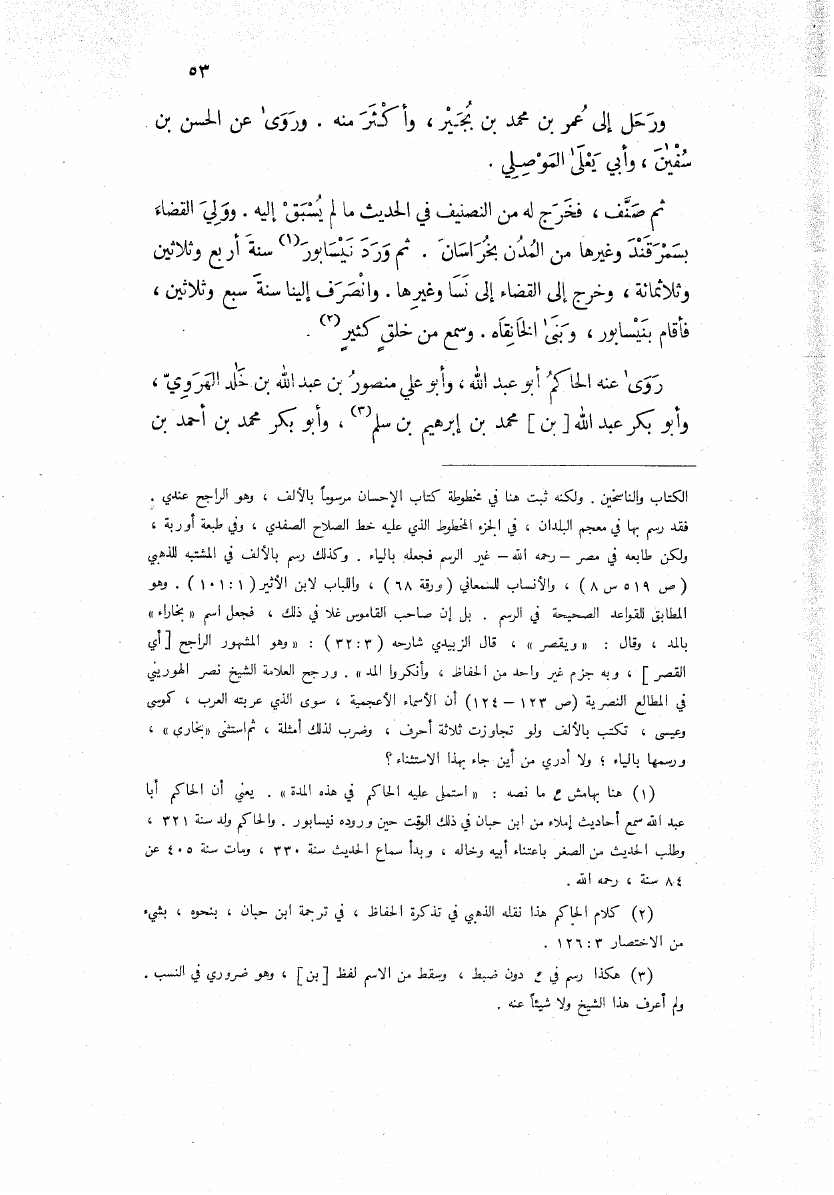 ٥٣
ورَحَل إلى عُمر بن محمد بن بُجَيْر ، وأَكْثَرَ منه . ورَوَىٰ عن الحسن بن
سُفْيٰنَ ، وأبي يَعْلَىٰ المَوْصِلِي .
ثم صَنَّف ، فخَرَج له من التصنيف في الحديث ما لم يُسْبَقْ إليه . ووَلِيَ القضاءَ
بسَمَرْقَنْدَ وغيرها من المُدُن بخُرَاسَانَ . ثم وَرَدَ نَيْسَابورَ(١) سنةَ أربع وثلاثين
وثلاثمائة ، وخرج إلى القضاء إلى نَسَا وغيرِها . وانْصَرَف إلينا سنةَ سبع وثلاثين ،
فأقام بنَيْسابور ، وبَنَىٰ الخَانِقَاه . وسمع من خلقٍ كثيرٍ(٢) .
رَوَىٰ عنه الحاكمُ أبو عبد الله ، وأبو علي منصورُ بن عبد الله بن خٰلد الهَرَوِيّ ،
وأبو بكر عبد الله [ بن ] محمد بن إبرهيم بن سلم(٣) ، وأبو بكر محمد بن أحمد بن
الكتاب والناسخين . ولكنه ثبت هنا في مخطوطة كتاب الإحسان مرسوماً بالألف ، وهو الراجح عندي .
فقد رسم بها في معجم البلدان ، في الجزء المخطوط الذي عليه خط الصلاح الصفدي ، وفي طبعة أوربة ،
ولكن طابعه في مصر – رحمه الله – غير الرسم فجعله بالياء . وكذلك رسم بالألف في المشتبه للذهبي
( ص ٥١٩ س ٨ ) ، والأنساب للسمعاني ( ورقة ٦٨ ) ، واللباب لابن الأثير ( ١ : ١٠١ ) . وهو
المطابق للقواعد الصحيحة في الرسم . بل إن صاحب القاموس غلا في ذلك ، فجعل اسم « بخاراء »
بالمد ، وقال : « ويقصر » ، قال الزبيدي شارحه ( ٣ : ٣٢ ) : « وهو المشهور الراجح [ أي
القصر ] ، وبه جزم غير واحد من الحفاظ ، وأنكروا المد » . ورجح العلامة الشيخ نصر الهوريني
في المطالع النصرية ( ص ١٢٣ – ١٢٤ ) أن الأسماء الأعجمية ، سوى الذي عربته العرب ، كموسى
وعيسى ، تكتب بالألف ولو تجاوزت ثلاثة أحرف ، وضرب لذلك أمثلة ، ثم استثنى « بخاري » ،
ورسمها بالياء ؛ ولا أدري من أين جاء بهذا الاستثناء ؟
(١) هنا بهامش ع ما نصه : « استملى عليه الحاكم في هذه المدة » . يعني أن الحاكم أبا
عبد الله سمع أحاديث إملاء من ابن حبان في ذلك الوقت حين وروده نيسابور . والحاكم ولد سنة ٣٢١ ،
وطلب الحديث من الصغر باعتناء أبيه وخاله ، وبدأ سماع الحديث سنة ٣٣٠ ، ومات سنة ٤٠٥ عن
٨٤ سنة ، رحمه الله .
(٢) كلام الحاكم هذا نقله الذهبي في تذكرة الحفاظ ، في ترجمة ابن حبان ، بنحوه ، بشيء
من الاختصار ٣ : ١٢٦ .
(٣) هكذا رسم في ع دون ضبط ، وسقط من الاسم لفظ [ بن ] ، وهو ضروري في النسب .
ولم أعرف هذا الشيخ ولا شيئاً عنه .